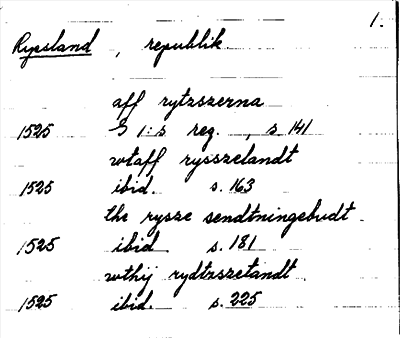 1.
Ryssland, republik
aff rytzszerna
1525 G I:s reg., s. 141
wtaff rysszelandt
1525 ibid. s. 163
the rysze sendtningebudt
1525 ibid s. 181
wthij rydtzszelandt
1525 ibid. s. 225